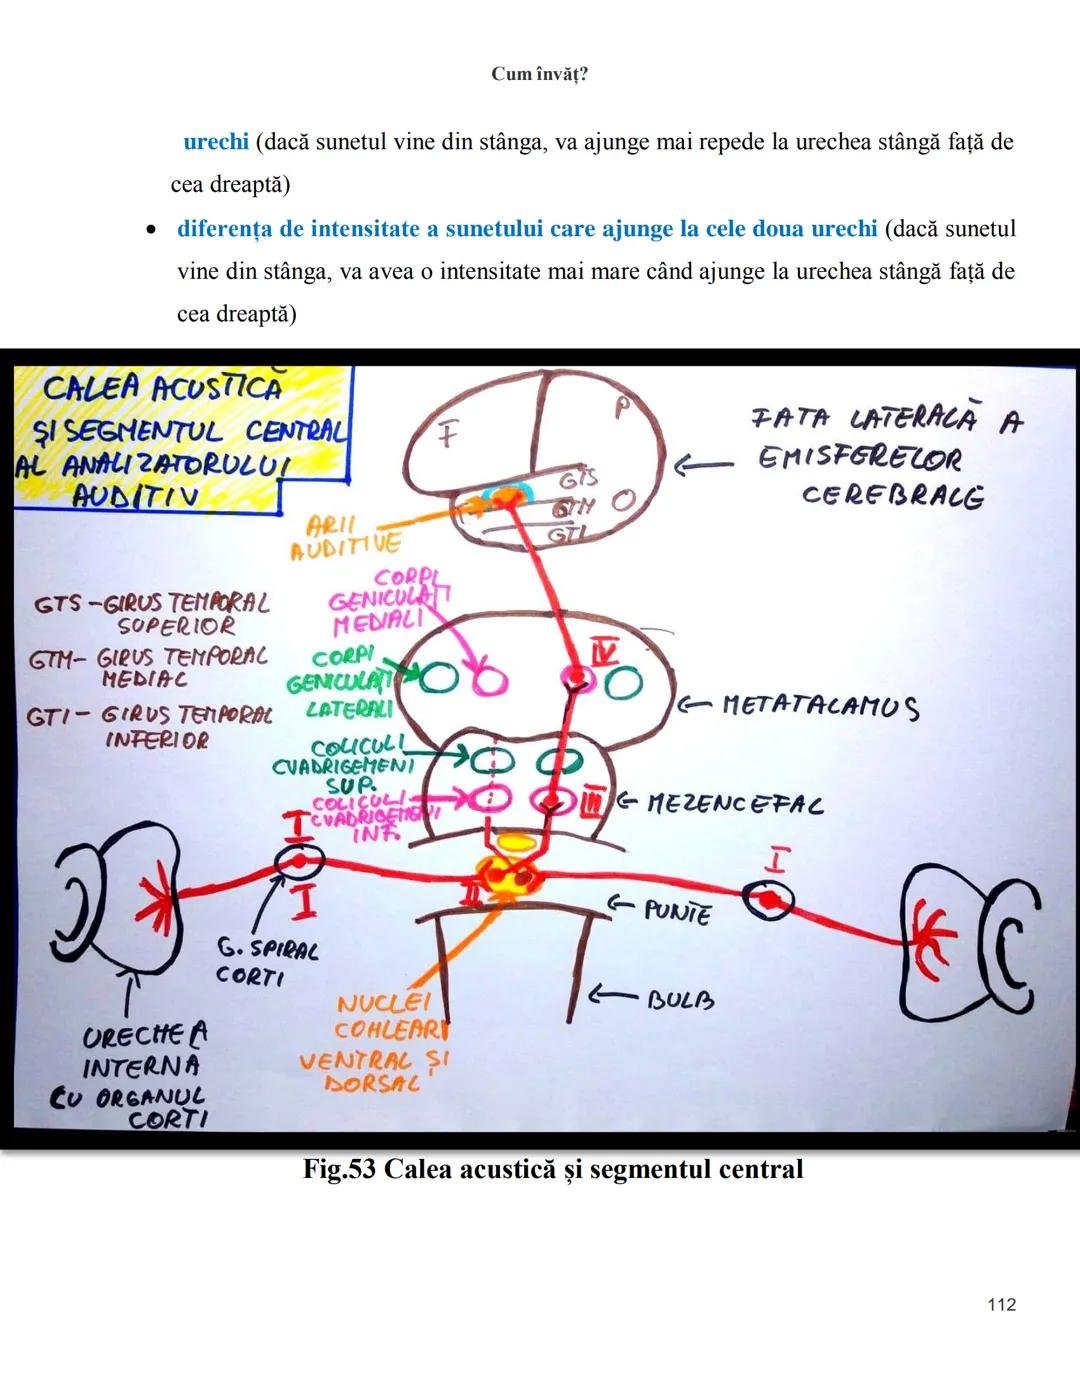 Cum învăț?
urechi (dacă sunetul vine din stânga, va ajunge mai repede la urechea stângă față de
cea dreaptă)
• diferența de intensitate a sunetului care ajunge la cele doua urechi (dacă sunetul
vine din stânga, va avea o intensitate mai mare când ajunge la urechea stângă față de
cea dreaptă)
CALEA ACUSTICĂ
ȘI SEGMENTUL CENTRAL
AL ANALIZATORULUI
AUDITIV
F
P
GTS
GTM
O
GTI
FATA LATERALĂ A
EMISFERELOR
CEREBRALE
ARII
AUDITIVE
CORPI
GENICULAȚI
MEDIALI
GTS - GIRUS TEMPORAL
SUPERIOR
GTM - GIRUS TEMPORAL
MEDIAL
GTI - GIRUS TEMPORAL
INFERIOR
CORPI
GENICULAȚI
LATERALI
IV
METATALAMUS
COLICULI
CVADRIGEMENI
SUP.
COLICULI
CVADRIGEMENI
INF.
III
MEZENCEFAL
I
I
I
II
PUNTE
G. SPIRAL
CORTI
BULB
NUCLEI
COHLEARI
VENTRAL ȘI
DORSAL
URECHEA
INTERNA
CU ORGANUL
CORTI
Fig.53 Calea acustică și segmentul central
112